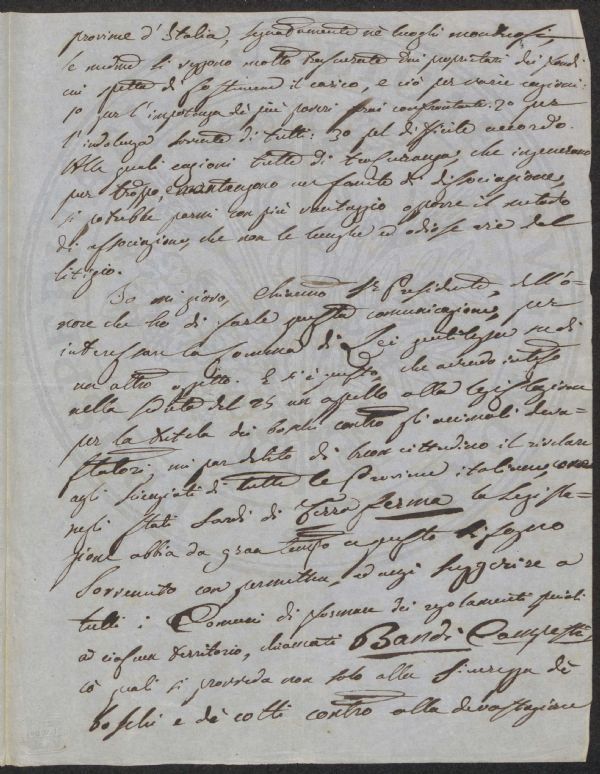 provincie d'Italia, segnatamente ne' luoghi montuosi,
le medesime si veggono molto trascurate dai proprietari dei fondi
cui spetta di sostenere il carico, e ciò per varie cagioni:
1o per l'impotenza de' più poveri frai confrontanti: 2o per
l'indolenza sovente di tutti: 3o pel difficile accordo.
Alle quali cagioni tutte di trascuranza, che ingenerano
pur troppo, e mantengono un fomite di dissociazione,
si potrebbe parmi con più vantaggio opporre il metodo
di associazione, che non le lunghe ed odiose vie del
litigio.
Io mi giovo, chiarmo Sr Presidente, dell'o-
nore che ho di farle questa comunicazione, per
interessare la somma di Lei gentilezza in di
un altro oggetto. E si è questo, che avendo inteso
nella seduta del 25 un appello alla legislazione
per la tutela dei boschi contro gli animali deva-
statori, mi par debito di buon cittadino il rivelare
agli scienziati di tutte le Provincie italiane, come
negli Stati Sardi di Terra ferma la legisla-
zione abbia da gran tempo a questo bisogno
sovvenuto con permettere, ed anzi suggerire a
tutti i Comuni di formare dei regolamenti speciali
ad ciascun territorio, chiamati Bandi Campestri,
co' quali si provveda non solo alla sicurezza de'
boschi e de' colti contro alla devastazione